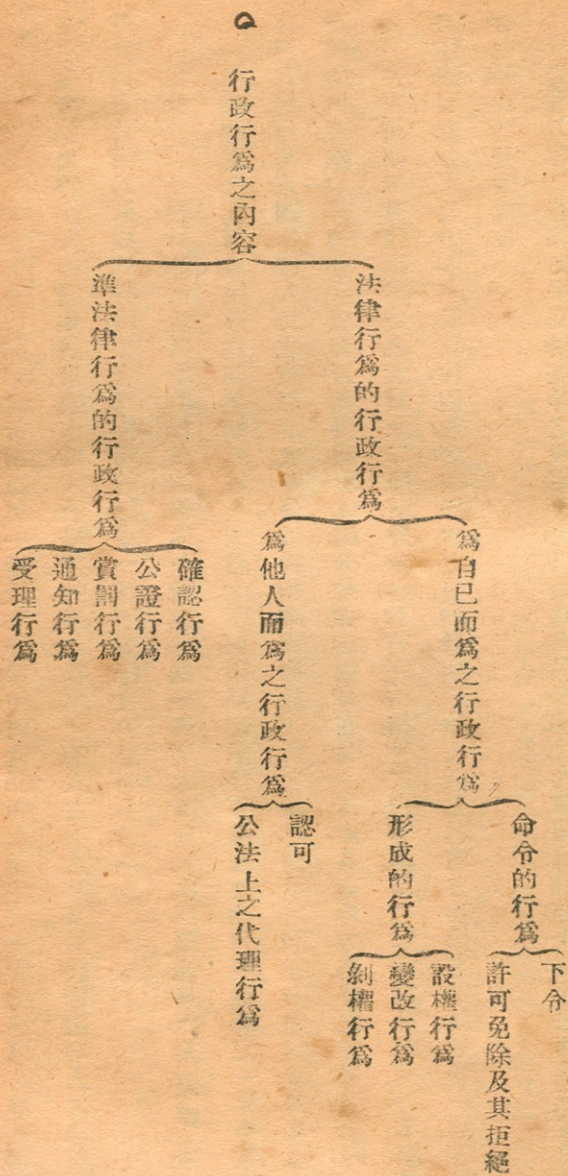 行政行爲之內容
法律行爲的行政行爲
爲自己而爲之行政行爲
命令的行爲
下令
許可免除及其拒絕
形成的行爲
設權行爲
變改行爲
剝權行爲
爲他人而爲之行政行爲
認可
公法上之代理行爲
準法律行爲的行政行爲
確認行爲
公證行爲
賞罰行爲
通知行爲
受理行爲